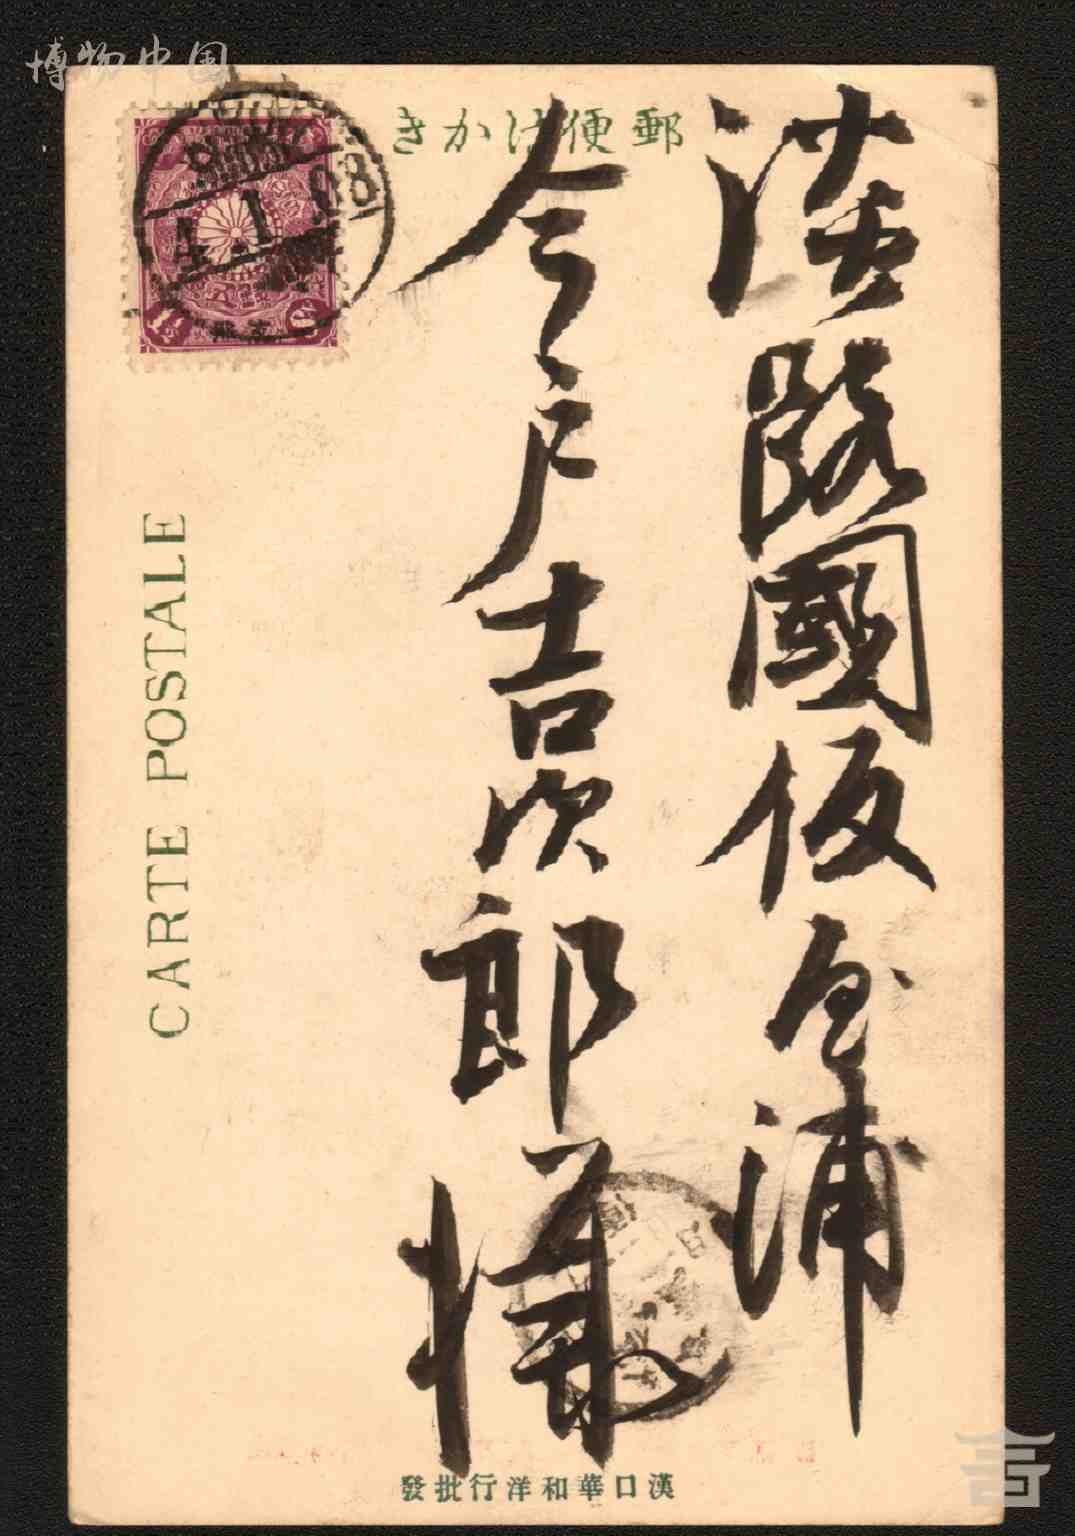 博物中国
郵便はかき
淡路國仮屋浦
今戸吉次郎様
CARTE POSTALE
漢口華和洋行批發